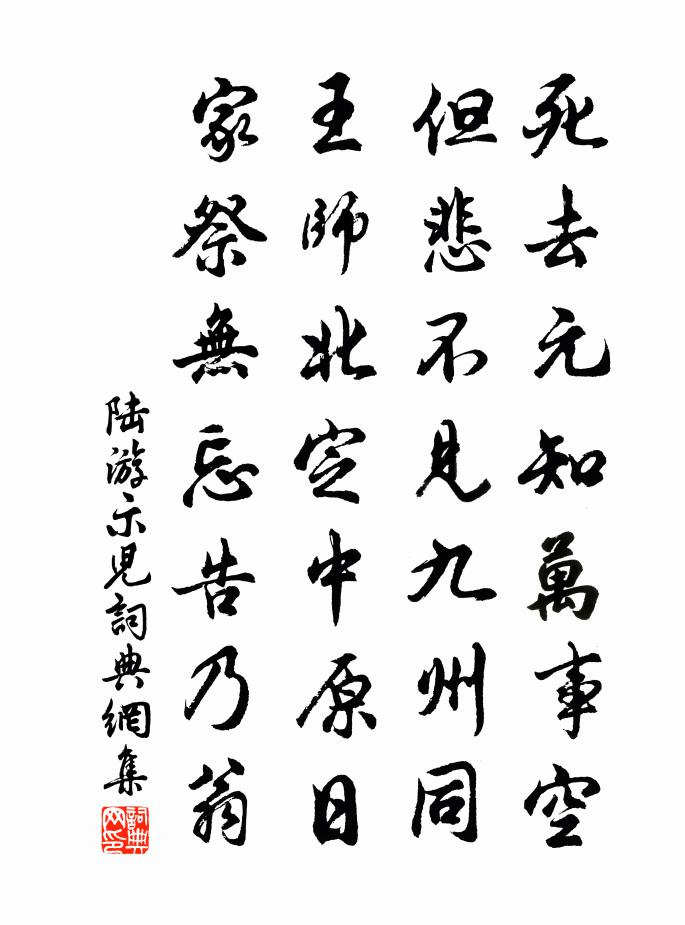 死去元知萬事空
但悲不見九州同
王師北定中原日
家祭無忘告乃翁
陆游示児詞典網集
詞典网印